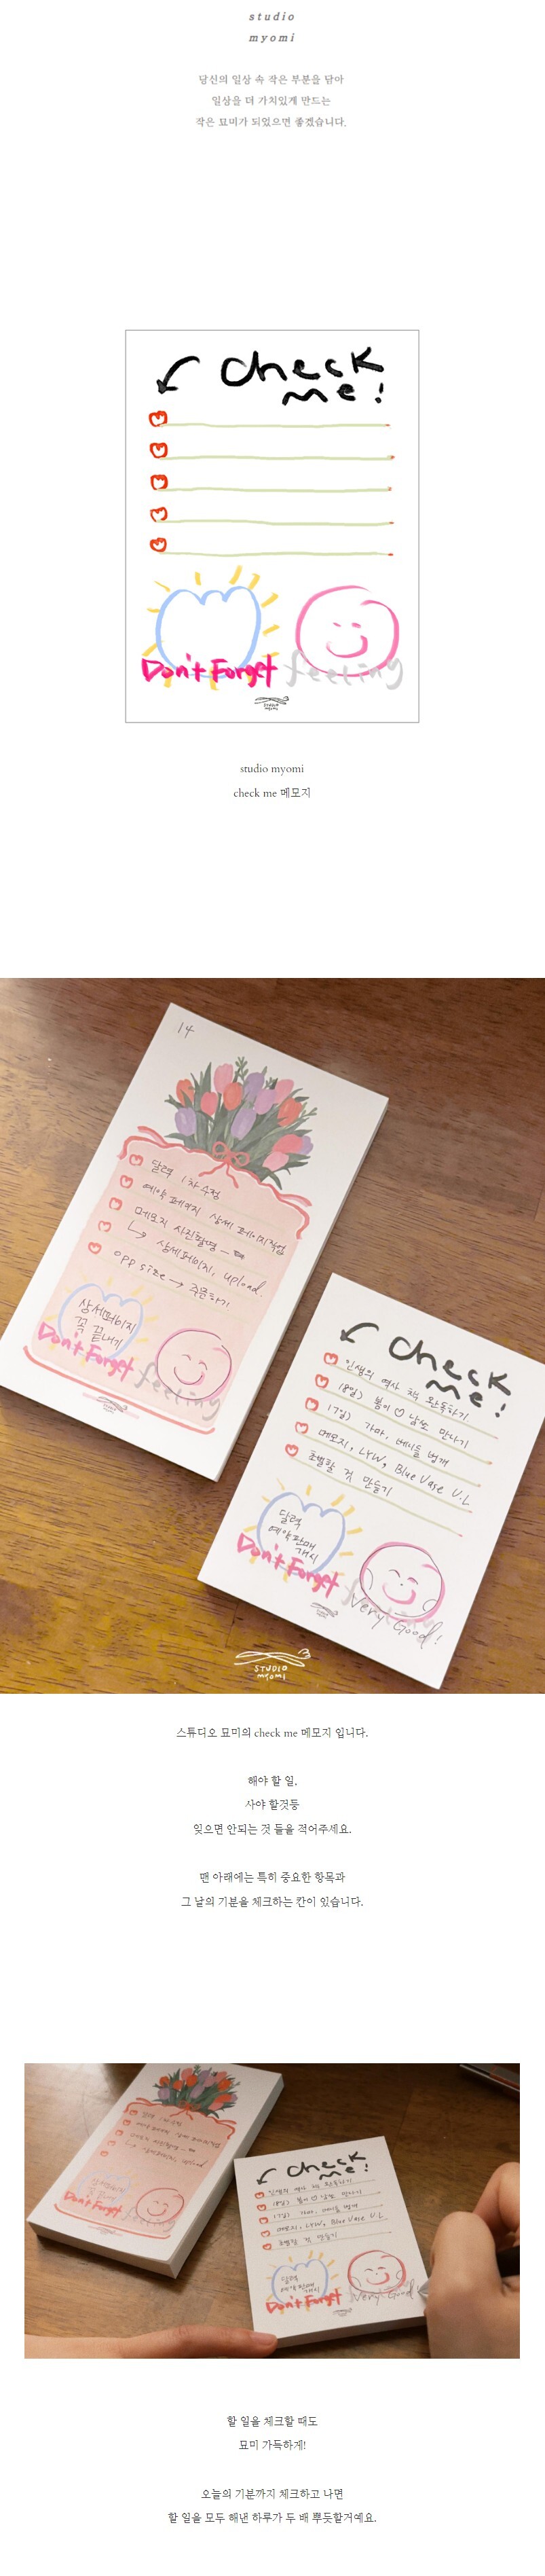 studio
myomi
당신의 일상 속 작은 부분을 담아
일상을 더 가치있게 만드는
작은 묘미가 되었으면 좋겠습니다.
check
me!
Don't Forget feeling
STUDIO
myomi
studio myomi
check me 메모지
14
달력 1차수정
예약 페이지 상세 페이지작업
메모지 사진촬영
↳ 상세페이지, upload.
opp size → 주문하기
상세페이지
꼭 끝내기
Don't Forget feeling
check
me!
인생의 역사 책 완독하기
18일) 봄이 ♡ 남쏘 만나기
17일) 가마, 베이들 번개
메모지, LYW, Blue Vase U.L
초벌할 것 만들기
달력
예약판매
개시
Don't Forget feeling
Very Good!
STUDIO
myomi
스튜디오 묘미의 check me 메모지 입니다.
해야 할 일,
사야 할것등
잊으면 안되는 것 들을 적어주세요.
맨 아래에는 특히 중요한 항목과
그 날의 기분을 체크하는 칸이 있습니다.
Don't Forget feeling
check
me!
인생의 역사 책 완독하기
메모지, LYW, Blue Vase U.L
초벌할 것 만들기
달력
예약판매
개시
Don't Forget
Very Good!
할 일을 체크할 때도
묘미 가득하게!
오늘의 기분까지 체크하고 나면
할 일을 모두 해낸 하루가 두 배 뿌듯할거예요.